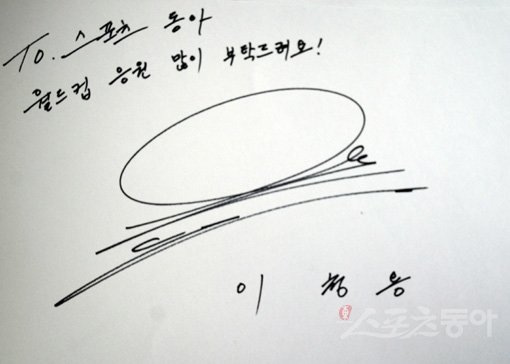 To. 스포츠 동아
월드컵 응원 많이 부탁드려요!
이 청 용
스포츠동아